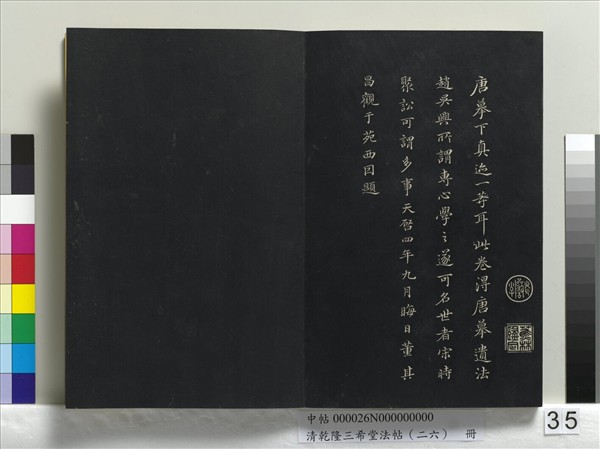 唐摹下真迹一等耳此卷得唐摹遺法
趙吳興所謂專心學之遂可名世者宋時
聚訟可謂多事天啓四年九月晦日董其
昌觀于苑西因題
中帖 000026N000000000
清乾隆三希堂法帖（二六） 冊
35